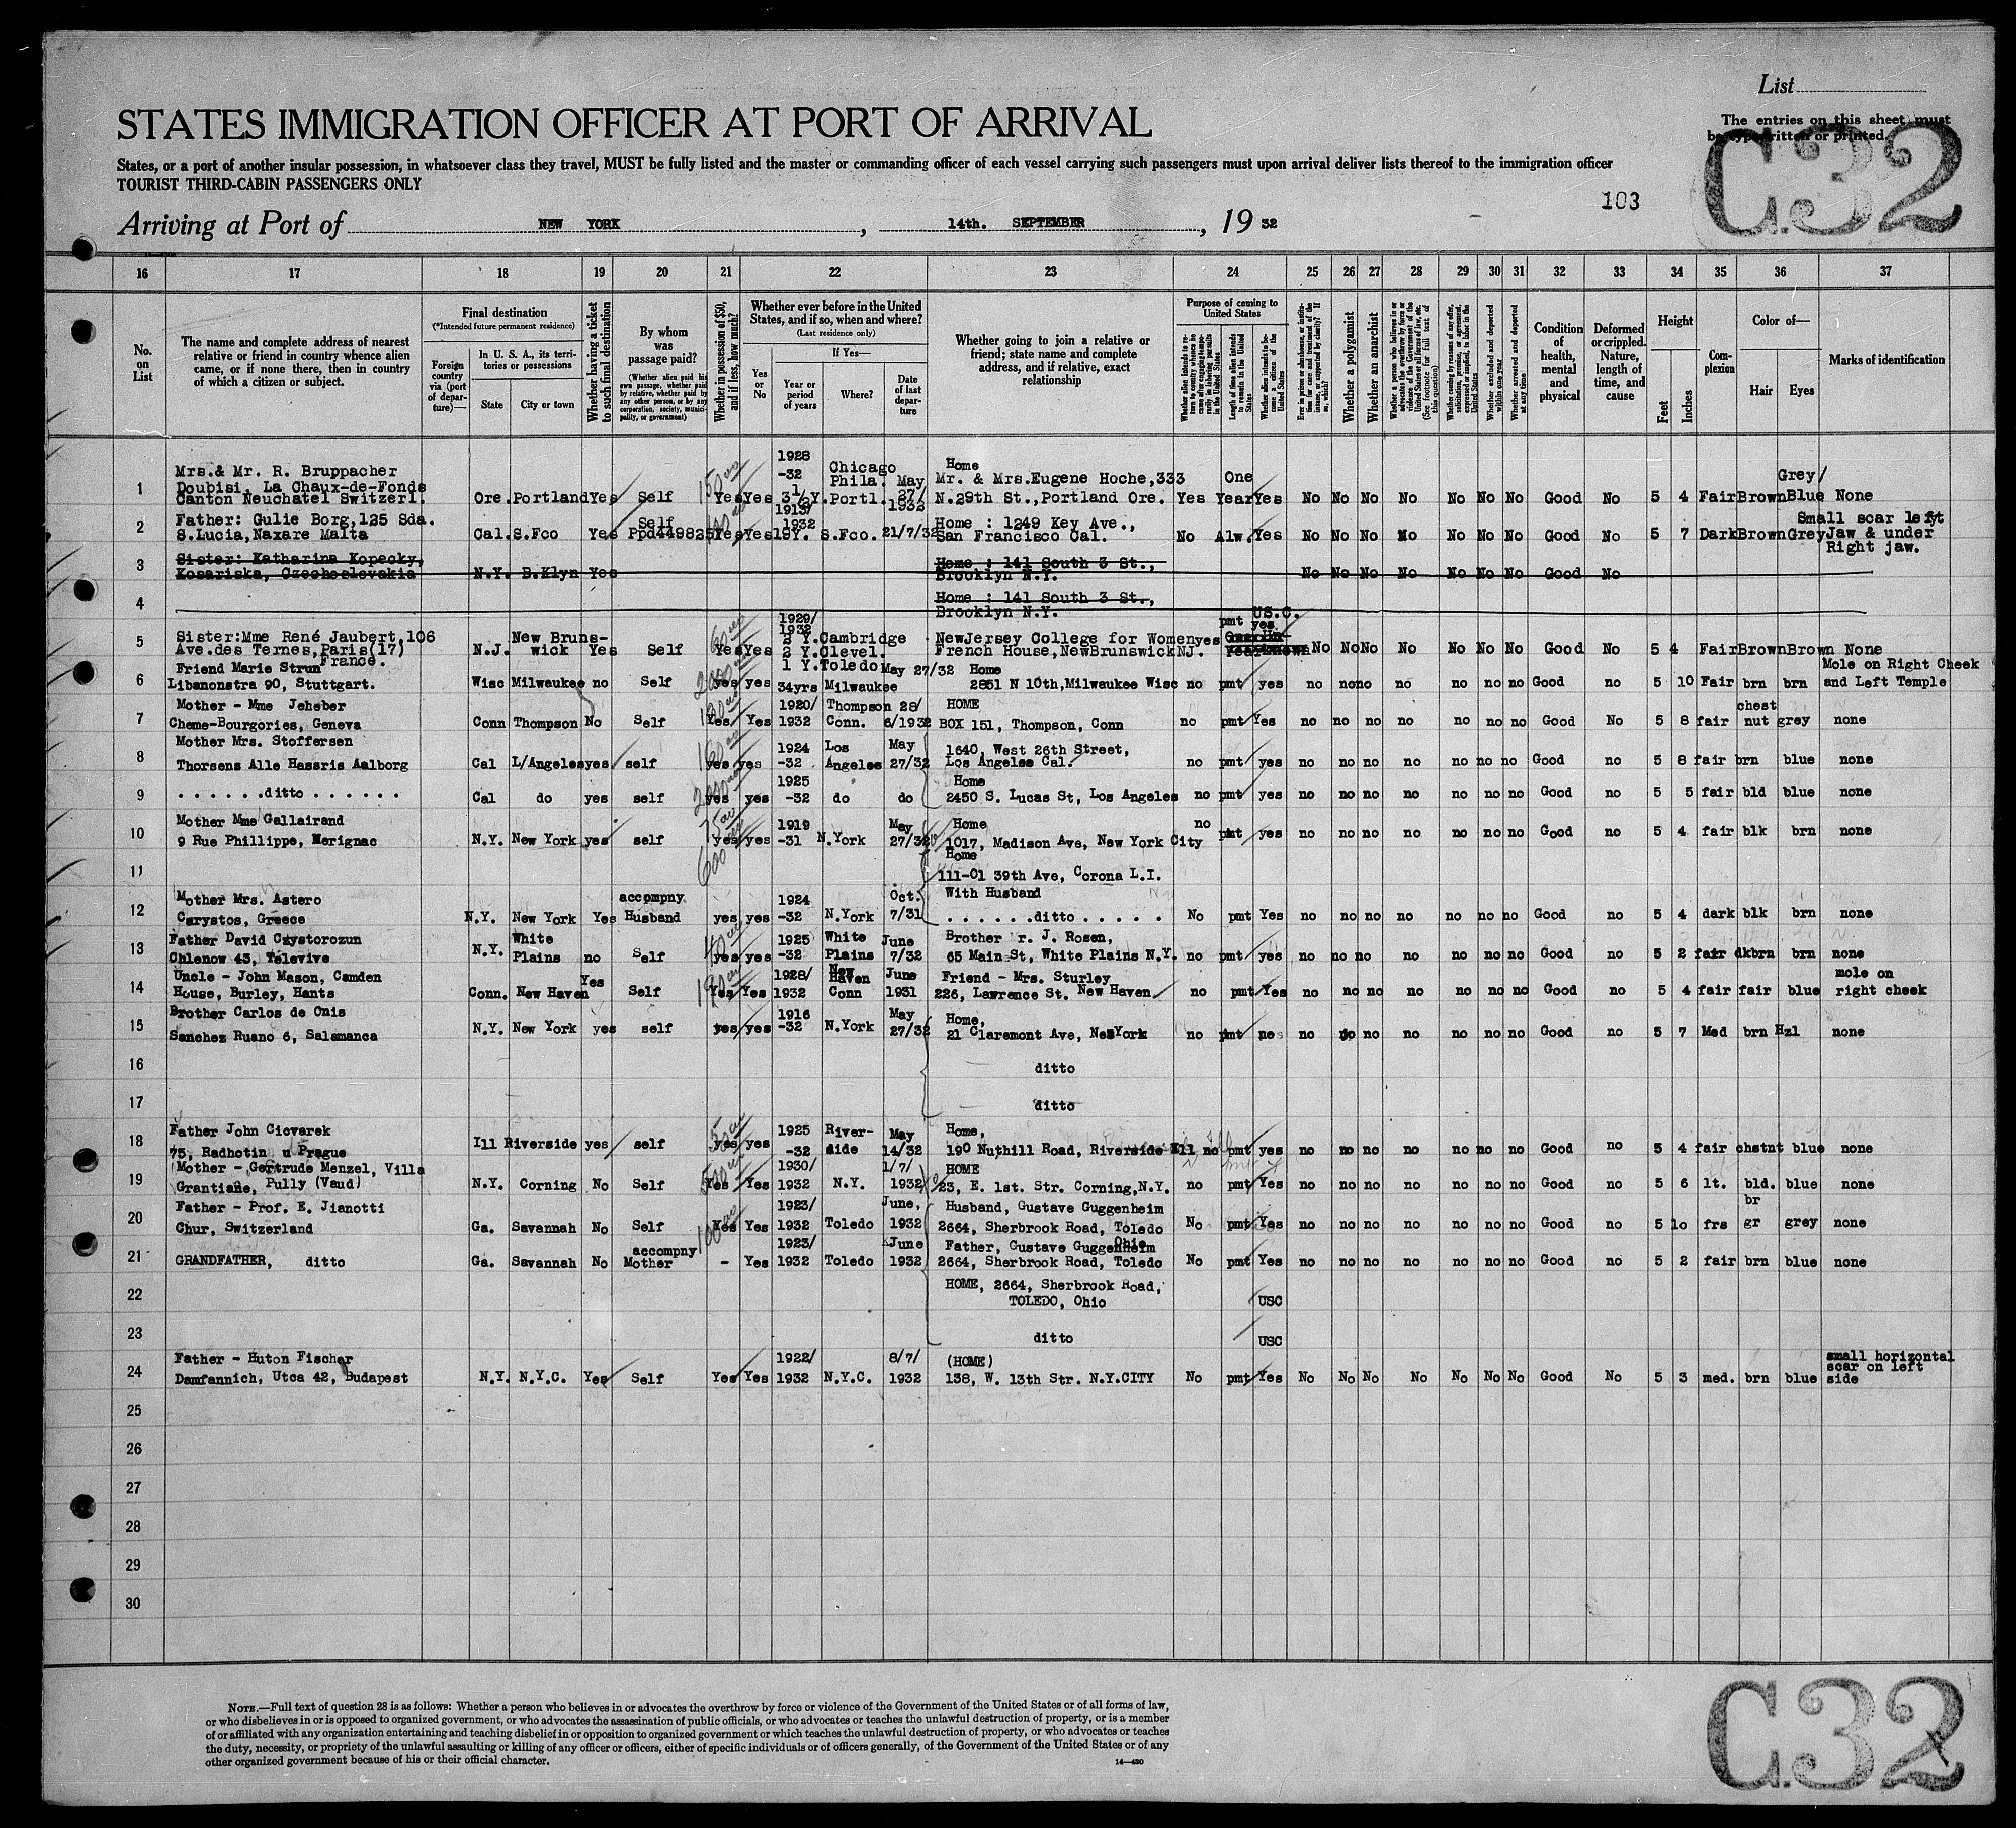 List
STATES IMMIGRATION OFFICER AT PORT OF ARRIVAL
The entries on this sheet must
be typewritten or printed.
C.32
States, or a port of another insular possession, in whatsoever class they travel, MUST be fully listed and the master or commanding officer of each vessel carrying such passengers must upon arrival deliver lists thereof to the immigration officer
TOURIST THIRD-CABIN PASSENGERS ONLY
103
Arriving at Port of NEW YORK, 14th. SEPTEMBER, 19 32
16 17 18 19 20 21 22 23 24 25 26 27 28 29 30 31 32 33 34 35 36 37
No. on List
The name and complete address of nearest relative or friend in country whence alien came, or if none there, then in country of which a citizen or subject.
Final destination
(*Intended future permanent residence)
Foreign country via (port of departure)—
In U. S. A., its territories or possessions
State City or town
Whether having a ticket to such final destination
By whom was passage paid?
(Whether alien paid his own passage, whether paid by relative, whether paid by any other person, or by any corporation, society, municipality, or government)
Whether in possession of $50, and if less, how much?
Whether ever before in the United States, and if so, when and where?
(Last residence only)
Yes or No
If Yes—
Year or period of years
Where?
Date of last departure
Whether going to join a relative or friend; state name and complete address, and if relative, exact relationship
Purpose of coming to United States
Whether alien intends to return to country whence he came after engaging temporarily in laboring pursuits in the United States
Length of time alien intends to remain in the United States
Whether alien intends to become a citizen of the United States
Ever in prison or almshouse, or institution for care and treatment of the insane, or supported by charity? If so, which?
Whether a polygamist
Whether an anarchist
Whether a person who believes in or advocates the overthrow by force or violence of the Government of the United States or all forms of law, etc. (See footnote for full text of this question)
Whether coming by reasons of any offer, solicitation, promise, or agreement, expressed or implied, to labor in the United States
Whether excluded and deported within one year
Whether arrested and deported at any time
Condition of health, mental and physical
Deformed or crippled. Nature, length of time, and cause
Height
Feet Inches
Complexion
Color of—
Hair Eyes
Marks of identification
1 Mrs.& Mr. R. Bruppacher Doubisi, La Chaux-de-Fonds Canton Neuchatel Switzerl. Ore. Portland Yes Self 150 Yes Yes 1928 -32 3½ Y. Chicago Phila. Portl. May 27/ 1932 Home Mr. & Mrs.Eugene Hoche,333 N.29th St.,Portland Ore. Yes One Year Yes No No No No No No No Good No 5 4 Fair Brown Grey/ Blue None
2 Father: Gulie Borg,125 Sda. S.Lucia,Naxare Malta Cal. S.Fco Yes Self Ppd449825 Yes Yes 1913/ 1932 19Y. S.Fco. 21/7/32 Home : 1249 Key Ave., San Francisco Cal. No Alw. Yes No No No No No No No Good No 5 7 Dark Brown Grey Small scar left Jaw & under Right jaw.
3 Sister: Katharina Kopecky, Kosariska, Czechoslovakia N.Y. B.Klyn Yes Home : 141 South 3 St., Brooklyn N.Y. No No No No No No No Good No
4 Home : 141 South 3 St., Brooklyn N.Y.
5 Sister:Mme René Jaubert,106 Ave.des Ternes,Paris(17) France. N.J. New Bruns- wick Yes Self 60 Yes Yes 1929/ 1932 2 Y.Cambridge 2 Y.Clevel. 1 Y.Toledo NewJersey College for Women French House,NewBrunswick NJ. yes pmt US.C. yes No No No No No No No Good No 5 4 Fair Brown Brown None
6 Friend Marie Strun Libanonstra 90, Stuttgart. Wisc Milwaukee no Self 200 yes yes 34yrs Milwaukee May 27/32 Home 2851 N 10th,Milwaukee Wisc no pmt yes no no no no no no no Good no 5 10 Fair brn brn Mole on Right Cheek and Left Temple
7 Mother - Mme Jeheber Cheme-Bourgories, Geneva Conn Thompson No Self Yes Yes 1920/ 1932 Thompson Conn. 28/ 6/1932 HOME BOX 151, Thompson, Conn no pmt Yes no no no no no no no Good No 5 8 fair chest nut grey none
8 Mother Mrs. Stoffersen Thorsens Alle Hassris Aalborg Cal L/Angeles yes self 160 yes yes 1924 -32 Los Angeles May 27/32 1640, West 26th Street, Los Angeles Cal. no pmt yes no no no no no no no Good no 5 8 fair brn blue none
9 . . . . . .ditto . . . . . . Cal do yes self yes yes 1925 -32 do do Home 2450 S. Lucas St, Los Angeles no pmt yes no no no no no no no Good no 5 5 fair bld blue none
10 Mother Mme Gallairand 9 Rue Phillippe, Merignac N.Y. New York yes self 75 yes yes 1919 -31 N.York May 27/32 Home 1017, Madison Ave, New York City no pmt yes no no no no no no no Good no 5 4 fair blk brn none
11 600 Home 111-01 39th Ave, Corona L.I.
12 Mother Mrs. Astero Carystos, Greece N.Y. New York Yes accompny Husband yes yes 1924 -32 N.York Oct. 7/31 With Husband . . . . . .ditto . . . . . No pmt Yes no no no no no no no Good no 5 4 dark blk brn none
13 Father David Czystorozun Chlenow 43, Televive N.Y. White Plains no Self 40 yes yes 1925 -32 White Plains June 7/32 Brother r. J. Rosen, 65 Main St, White Plains N.Y. no pmt yes no no no no no no no Good no 5 2 fair dkbrn brn none
14 Uncle - John Mason, Camden House, Burley, Hants Conn. New Haven Yes Self Yes Yes 1928/ 1932 New Haven Conn June 1931 Friend - Mrs. Sturley 226, Lawrence St. New Haven. no pmt Yes no no no no no no no Good no 5 4 fair fair blue mole on right cheek
15 Brother Carlos de Onis Sanchez Ruano 6, Salamanca N.Y. New York yes self yes yes 1916 -32 N.York May 27/32 Home, 21 Claremont Ave, NewYork no pmt no no no no no no no no Good no 5 7 Med brn Hzl none
16 ditto
17 ditto
18 Father John Cicvarek 75, Radhotin u Prague Ill Riverside yes self 50 yes yes 1925 -32 River- side May 14/32 Home, 190 Nuthill Road, Riverside Ill no pmt yes no no no no no no no Good no 5 4 fair chstnt blue none
19 Mother - Gertrude Menzel, Villa Grantiane, Pully (Vaud) N.Y. Corning No Self 500 Yes Yes 1930/ 1932 N.Y. 1/7/ 1932 HOME 23, E. 1st. Str. Corning,N.Y. no pmt Yes no no no no no no no Good no 5 6 lt. bld. blue none
20 Father - Prof. E. Jianotti Chur, Switzerland Ga. Savannah No Self 100 Yes Yes 1923/ 1932 Toledo June, 1932 Husband, Gustave Guggenheim 2664, Sherbrook Road, Toledo Ohio No pmt Yes no no no no no no no Good no 5 10 frs br gr grey none
21 GRANDFATHER, ditto Ga. Savannah No accompny Mother - Yes 1923/ 1932 Toledo June 1932 Father, Gustave Guggenheim 2664, Sherbrook Road, Toledo No pmt Yes no no no no no no no Good no 5 2 fair brn blue none
22 HOME, 2664, Sherbrook Road, TOLEDO, Ohio USC
23 ditto USC
24 Father - Huton Fischer Damfannich, Utca 42, Budapest N.Y. N.Y.C. Yes Self Yes Yes 1922/ 1932 N.Y.C. 8/7/ 1932 (HOME) 138, W. 13th Str. N.Y.CITY No pmt Yes No No No No No No No Good No 5 3 med. brn blue small horizontal scar on left side
25
26
27
28
29
30
NOTE.—Full text of question 28 is as follows: Whether a person who believes in or advocates the overthrow by force or violence of the Government of the United States or of all forms of law,
or who disbelieves in or is opposed to organized government, or who advocates the assassination of public officials, or who advocates or teaches the unlawful destruction of property, or is a member
of or affiliated with any organization entertaining and teaching disbelief in or opposition to organized government or which teaches the unlawful destruction of property, or who advocates or teaches
the duty, necessity, or propriety of the unlawful assaulting or killing of any officer or officers, either of specific individuals or of officers generally, of the Government of the United States or of any
other organized government because of his or their official character.
14—430
C.32